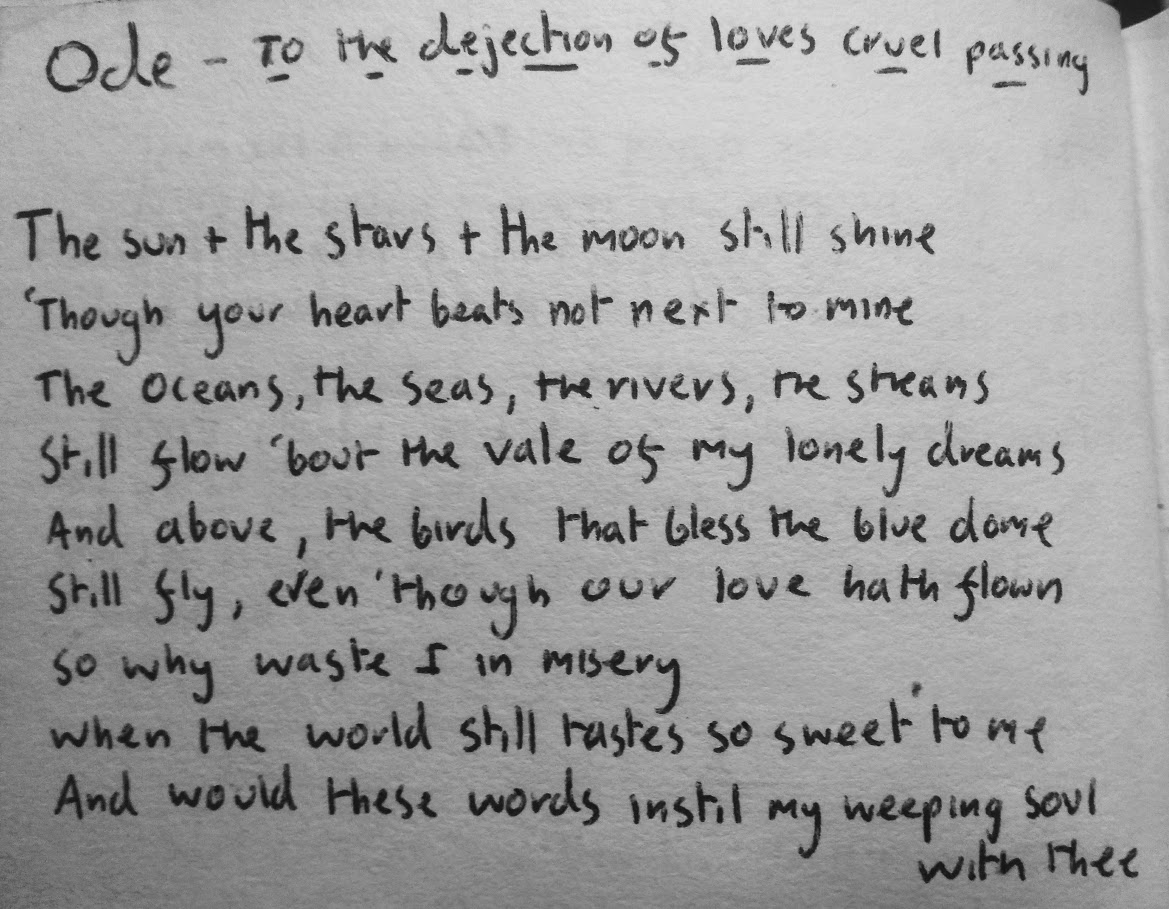 Ode - To the dejection of loves cruel passing
The sun + the stars + the moon still shine
'Though your heart beats not next to mine
The Oceans, the seas, the rivers, the streams
Still flow 'bout the vale of my lonely dreams
And above, the birds that bless the blue dome
Still fly, even 'though our love hath flown
So why waste I in misery
When the world still tastes so sweet to me
And would these words instil my weeping soul
with thee